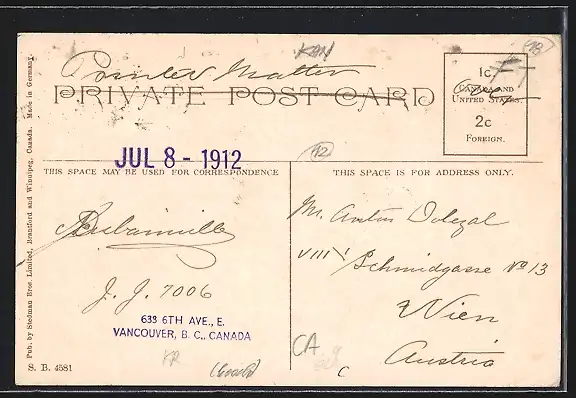 KAN
18
Printed Matter
PRIVATE POST CARD
1c.
CANADA AND
UNITED STATES.
2c
FOREIGN.
JUL 8 - 1912
12
THIS SPACE MAY BE USED FOR CORRESPONDENCE
THIS SPACE IS FOR ADDRESS ONLY.
J. J. 7006
633 6TH AVE., E.
VANCOUVER, B. C., CANADA
Mr. Anton Dolezal
VIII/1 Schmidgasse No 13
Wien
Austria
CA
C
S. B. 4581
Pub. by Stedman Bros. Limited, Brantford and Winnipeg, Canada. Made in Germany.